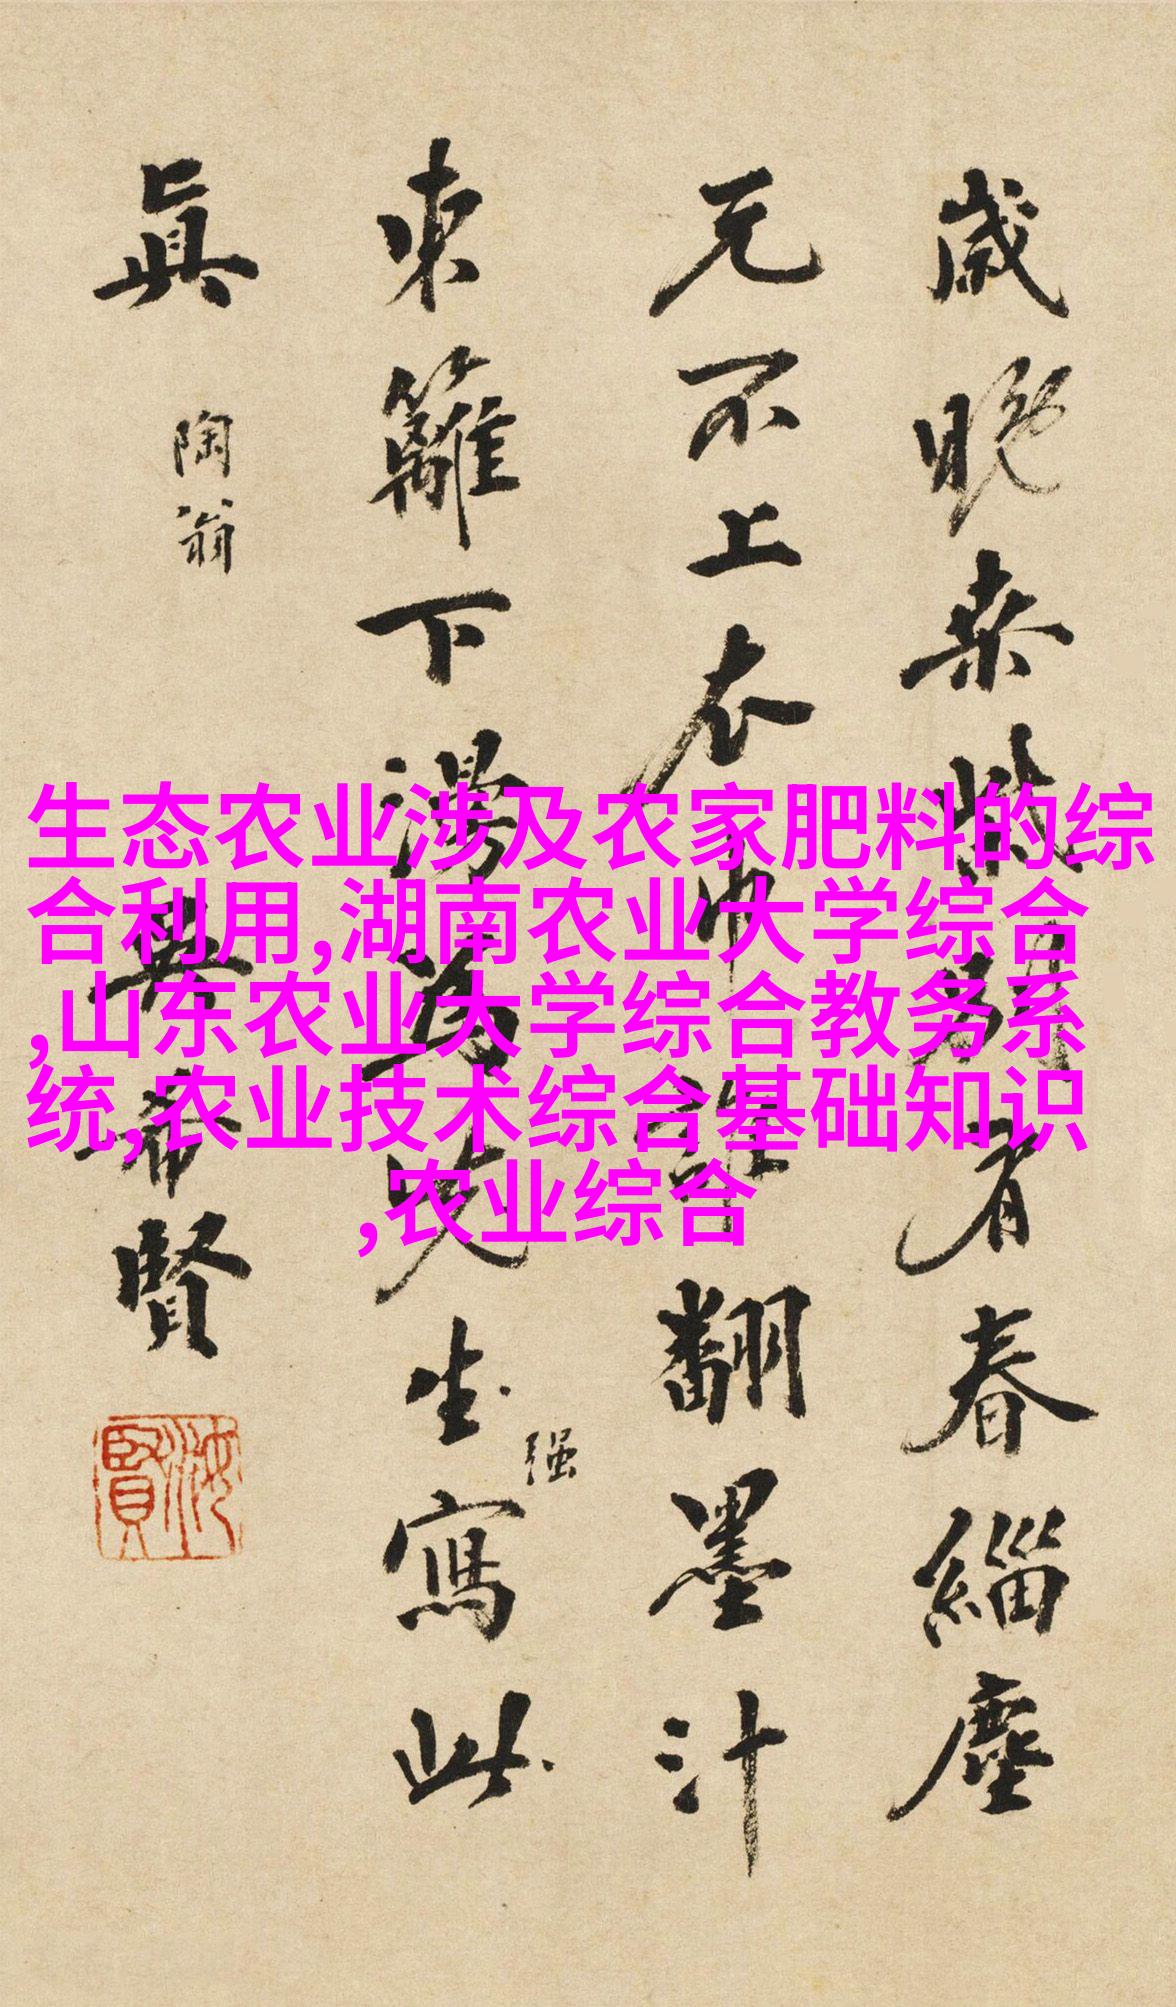 歲晚桒別有春緇塵
元不上衣巾誰翻墨汁
東籬下為先生寫此
强
眞
陶翁
吳希賢
汝賢
生态农业涉及农家肥料的综
合利用,湖南农业大学综合
,山东农业大学综合教务系
统,农业技术综合基础知识
,农业综合